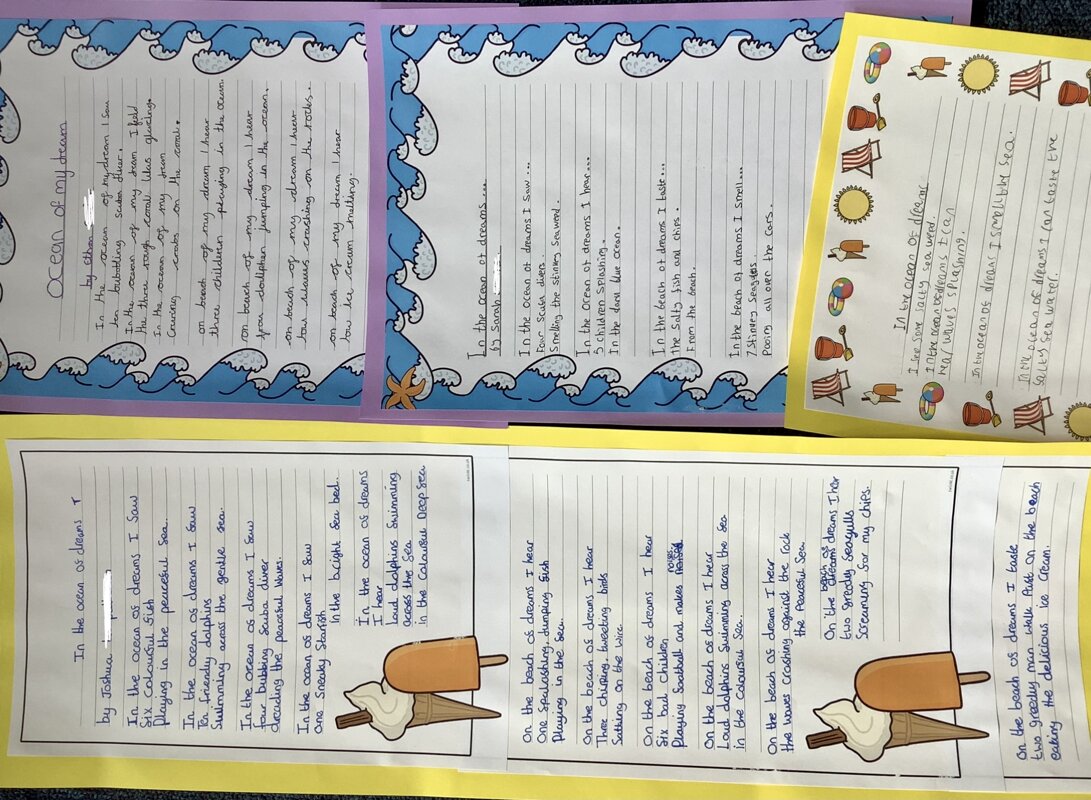 Ocean of my dream
by ethan
In the ocean of my dream I saw
ten bubbling scuba diver.
In the ocean of my dream I
the three rough coral like glueing.
In the ocean of my dream
crabs on the coral.
on beach of my dream I hear
three children playing in the ocean
on beach of my dream I hear
four dolphin jumping in the ocean.
on beach of my dream I hear
four waves crashing on the rocks.
on beach of my dream I hear
ice cream melting.
In the ocean of dreams...
by Sarah
In the ocean of dreams I saw...
Four scuba divers.
Smelling the stinky seaweed.
In the ocean of dreams I hear...
5 children splashing.
In the dark blue ocean.
In the beach of dreams I taste...
The salty fish and chips.
From the beach.
In the beach of dreams I smell...
7 stinkey
Pooing all over the cars.
In the ocean of dreams
I the some salty sea weed
In the ocean of dreams I can
hear waves splashing.
In the ocean of dreams I smell by sea.
In the ocean of dreams I can taste the
salty sea water.
In the ocean of dreams
by Joshua
In the ocean of dreams I saw
Six colourful fish
Playing in the peaceful sea.
In the ocean of dreams I saw
Ten friendly dolphins
Swimming across the gentle sea.
In the ocean of dreams I saw
four bubbing scuba diver
the peaceful waves.
In the ocean of dreams I saw
One sneaky starfish
in the bright sea bed.
In the ocean of dreams
I hear
Loud dolphins swimming
across the sea
in the colourful Deep sea
On the beach of dreams I hear
One fish
Playing in the sea.
On the beach of dreams I hear
Three chirping, tweeting birds
on the wire.
On the beach of dreams I hear
Six children
Playing and makes noises
On the beach of dreams I hear
Loud dolphins swimming across the sea
in the colourful sea.
On the beach of dreams I hear
the waves crashing against the rock
the peaceful sea.
On the beach of dreams I her
two greedy seagulls
screaming for my chips.
On the beach of dreams I taste
two greedy man walk past on the beach
eating the delicious ice cream.